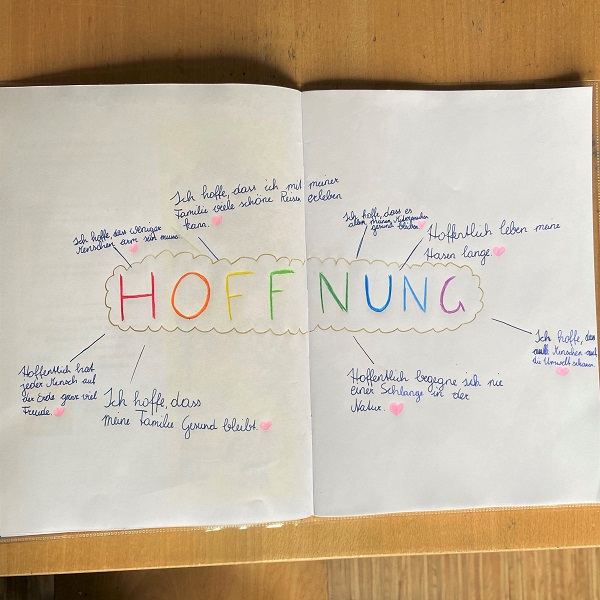 Ich hoffe, dass ich mit meiner
Familie viele schöne Reisen erleben
kann.
Ich hoffe, dass weniger
Menschen arm sein muss
Ich hoffe, dass es
allen meinen
gesund bleiben.
Hoffentlich leben meine
Hasen lange.
HOFFNUNG
Hoffentlich hat
jeder Mensch auf
der Erde ganz viel
Freude.
Ich hoffe, dass
meine Familie Gesund bleibt.
Hoffentlich begegne ich nie
einer Schlange in der
Natur.
Ich hoffe, das
Menschen auf
die Umwelt